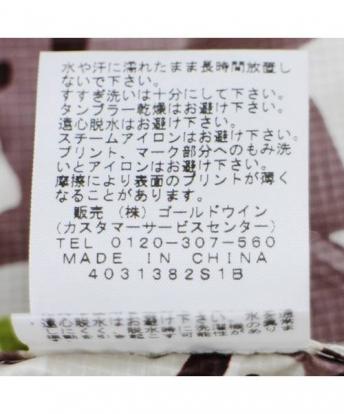 水や汗に濡れたまま長時間放置し
ないで下さい。
すすぎ洗いは十分にして下さい。
タンブラー乾燥はお避け下さい。
遠心脱水はお避け下さい。
スチームアイロンはお避け下さい。
プリント、マーク部分へのもみ洗
いとアイロンはお避け下さい。
摩擦により表面のプリントが薄く
なることがあります。
販売 (株) ゴールドウイン
(カスタマーサービスセンター)
TEL 0120-307-560
MADE IN CHINA
4031382S1B
遠心脱水はお避け下さい